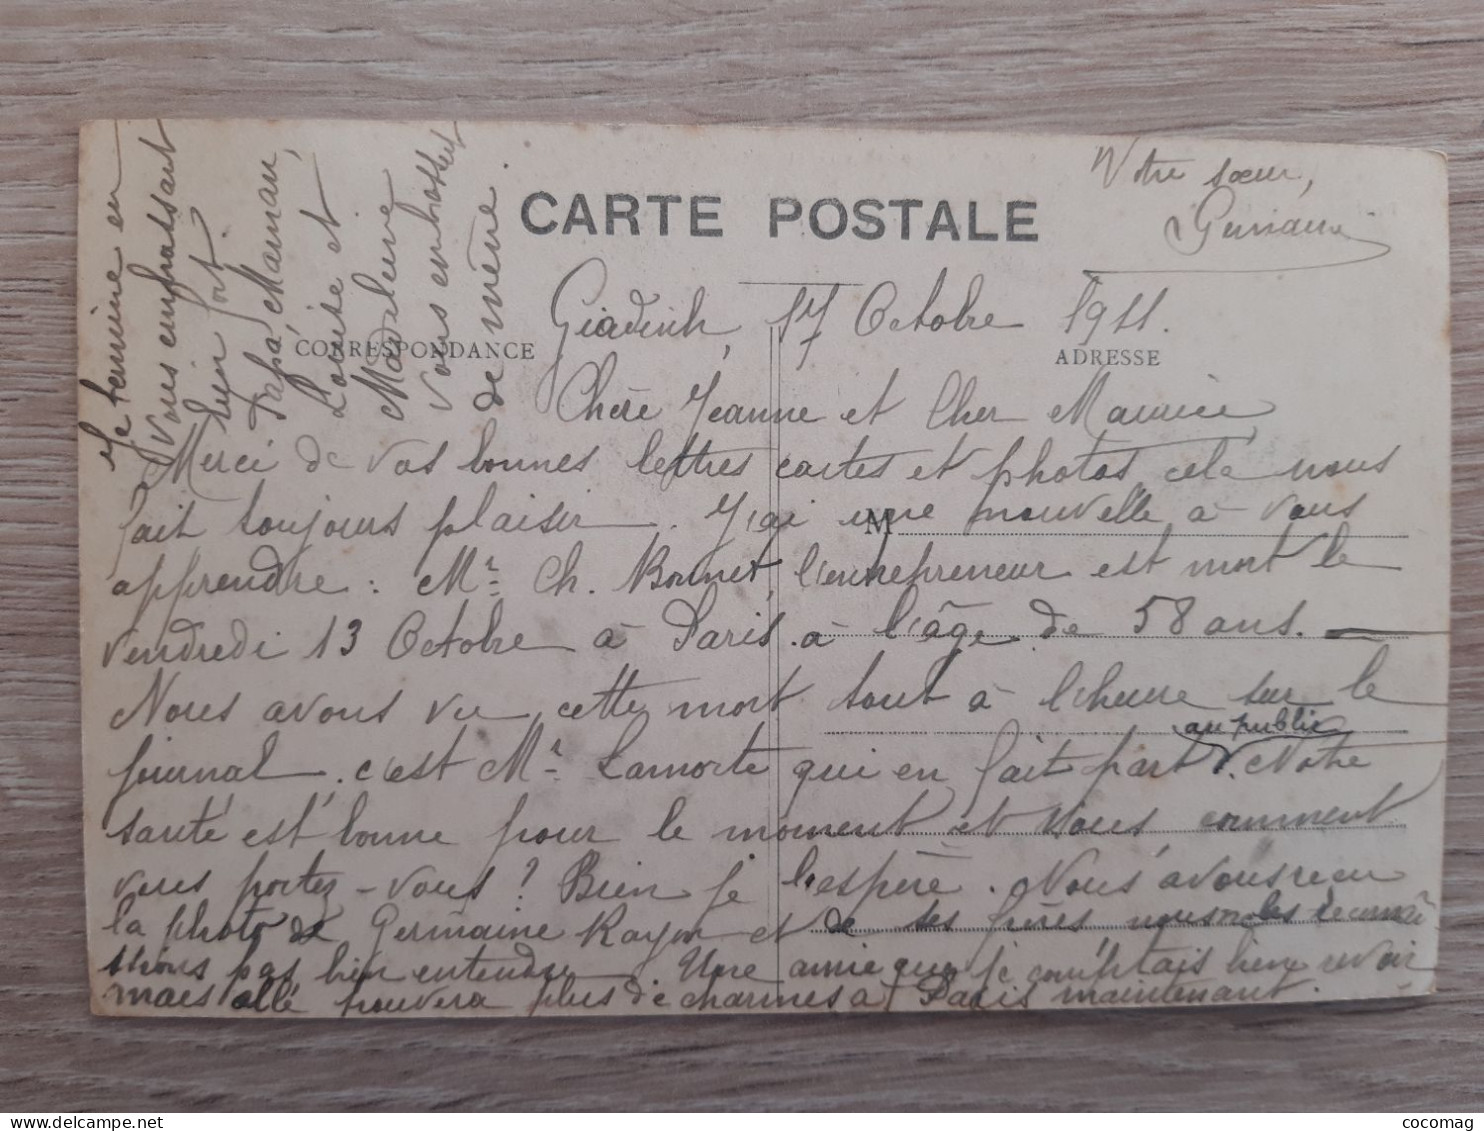 CARTE POSTALE
CORRESPONDANCE
ADRESSE
M
Giadinh, 17 Octobre 1911.
Chère Jeanne et Cher Maurice,
Merci de vos bonnes lettres cartes et photos, celà nous
fait toujours plaisir. J'ai une nouvelle à vous
apprendre : Mr. Ch. Bonnet, l'entrepreneur est mort le
vendredi 13 Octobre à Paris. à l'âge de 58 ans. —
Nous avons vu cette mort tout à l'heure sur le
journal, c'est Mr. Lamorte qui en fait part au public. Notre
santé est bonne pour le moment et vous, comment
vous portez-vous ? Bien je l'espère. Nous avons reçu
la photo de Germaine Rayon et de ses frères nous ne les reconnai
ssions pas bien entendu. Une amie que je comptais bien revoir
mais elle trouvera plus de charmes à Paris maintenant.
Je termine en
vous embrassant
bien fort
Papa, Maman,
Louise et
Madeleine
vous embrassent
de même.
Votre sœur,